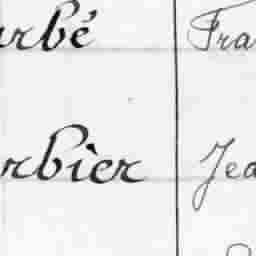 rbé Fra
rbièr Jea